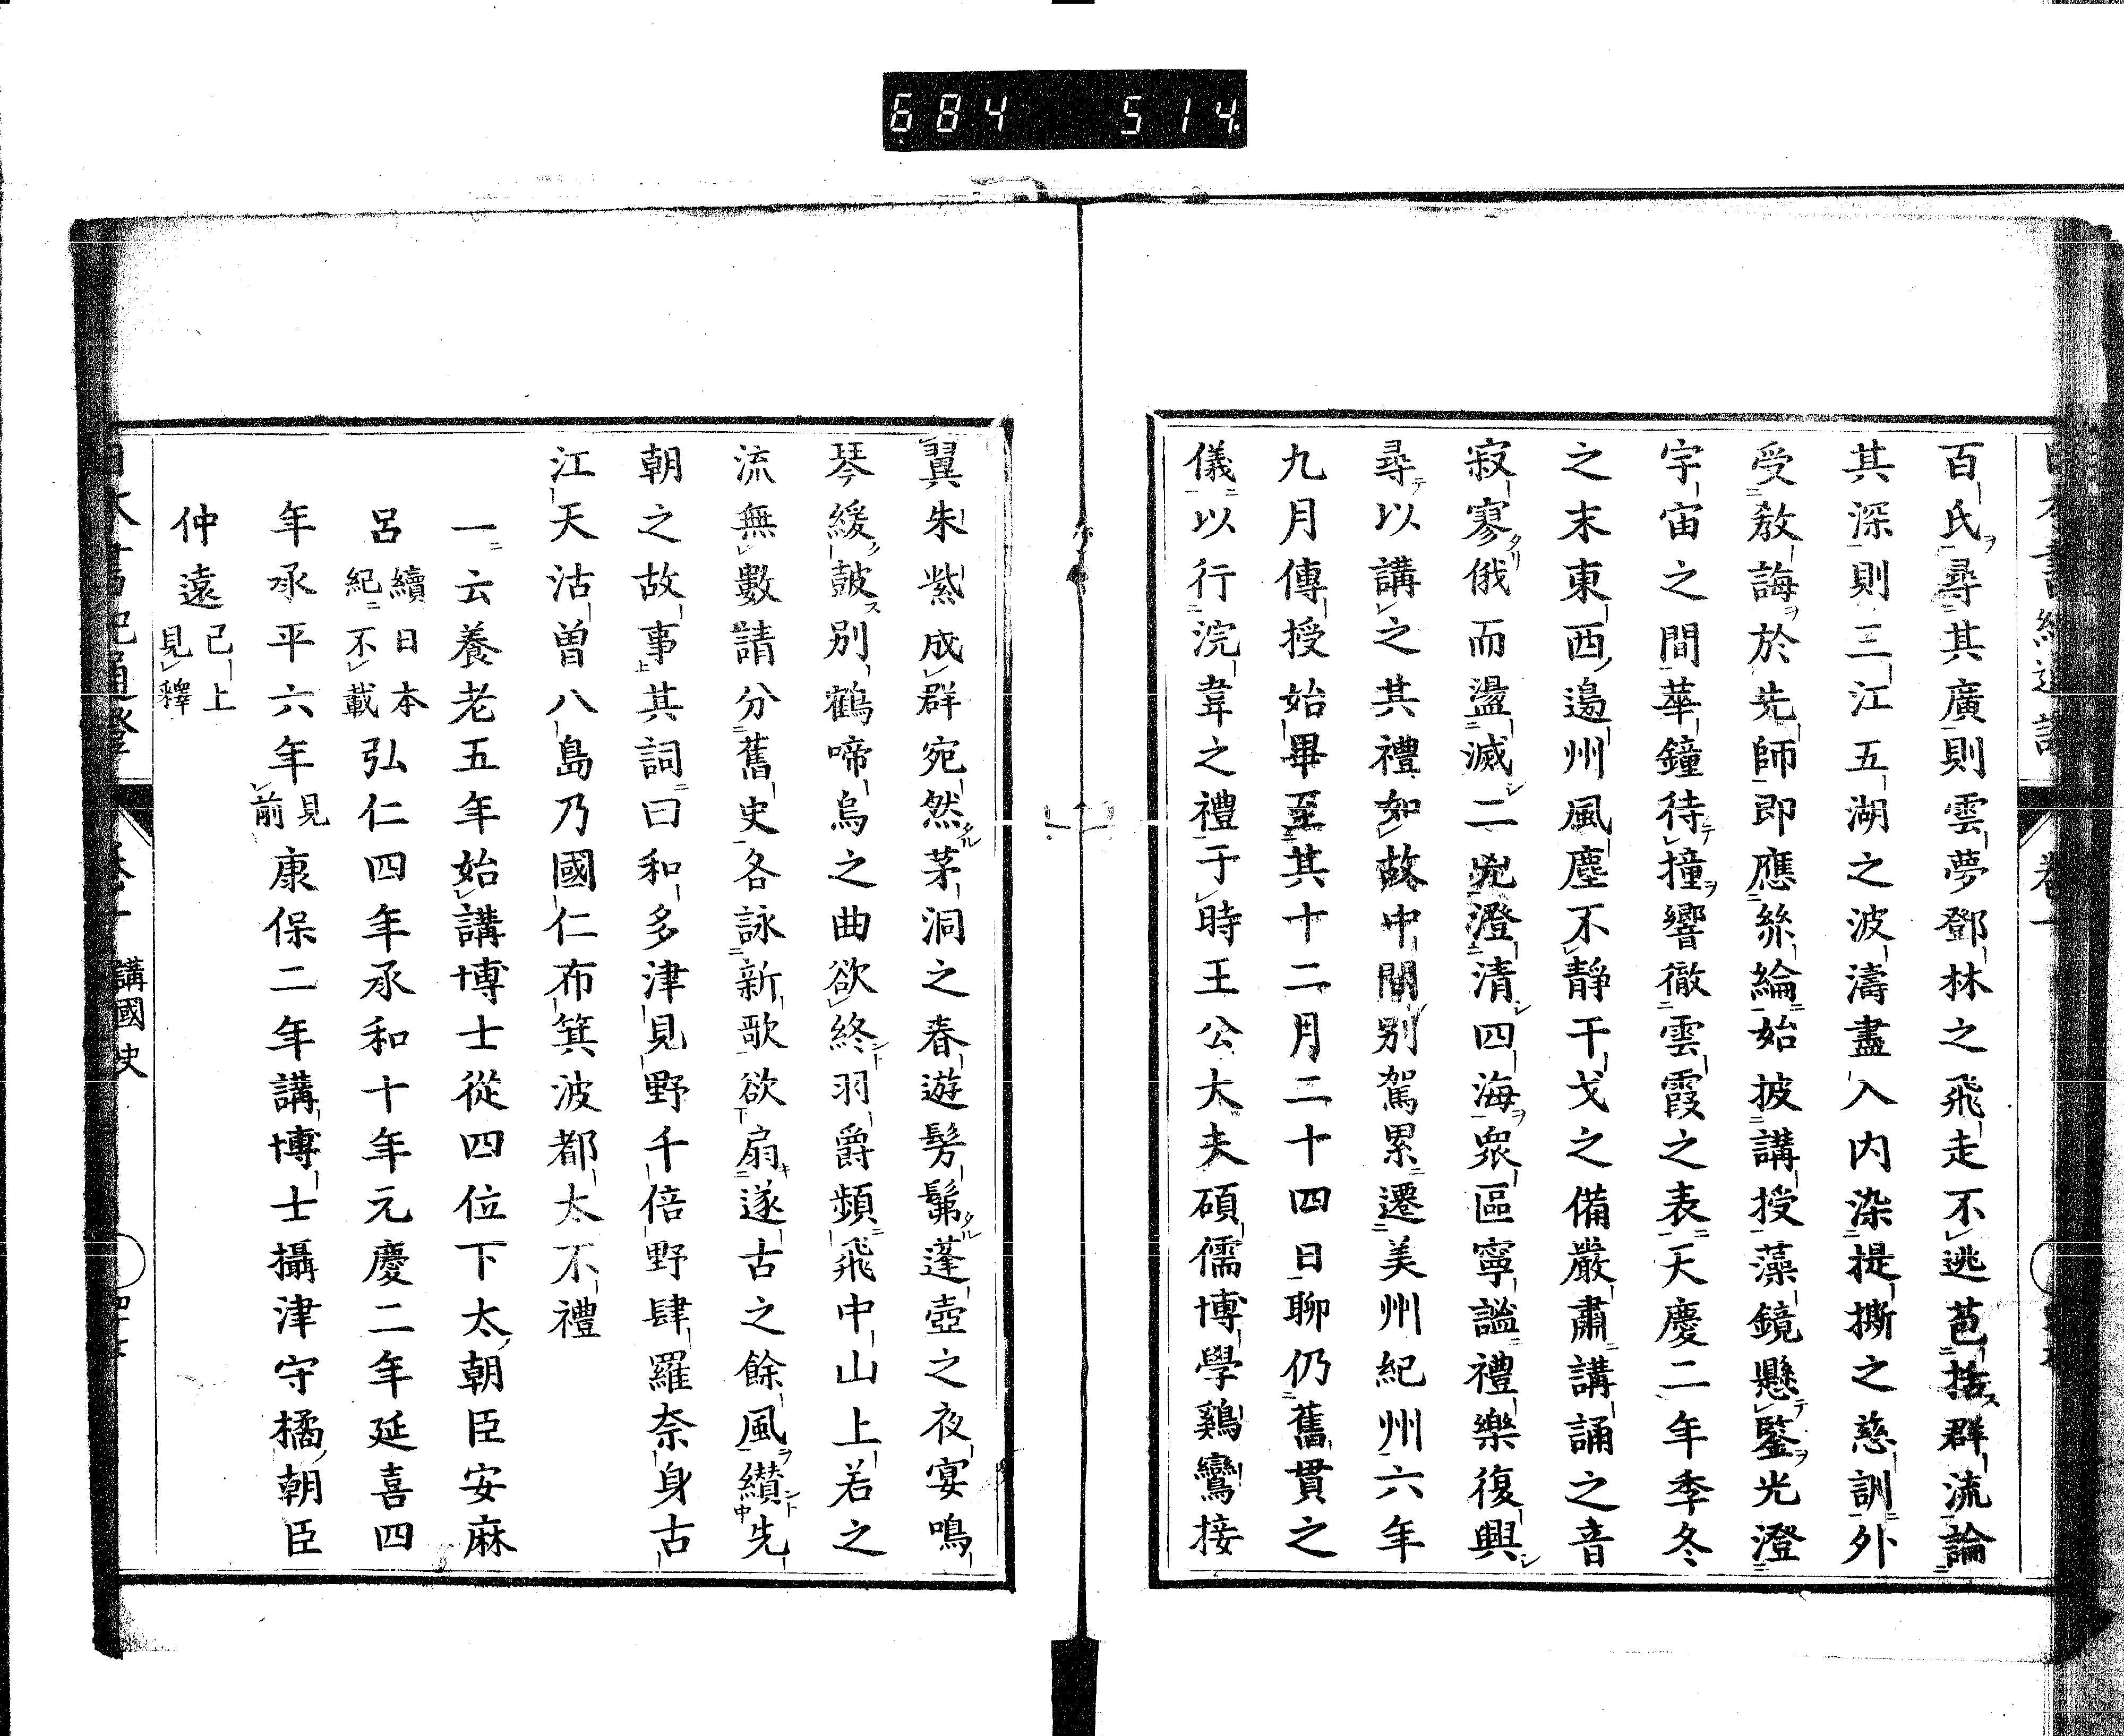 684 514
百氏尋其廣則雲夢鄧林之飛走不逃苞括群流論
其深則三江五湖之波濤盡入内染提撕之慈訓外
受教誨於先師即應綸始披講授藻鏡懸鑒光澄
宇宙之間華鐘待撞響徹雲霞之表天慶二年季冬
之末東西邊州風塵不靜干戈之備嚴肅講誦之音
寂寥俄而盪滅二兇澄清四海衆區寧謐禮樂復興
尋以講之其禮如故中間別駕累遷美州紀州六年
九月傳授始畢至其十二月二十四日聊仍舊貫之
儀以行浣韋之禮于時王公大夫碩儒博學鷄鸞接
翼朱紫成群宛然茅洞之春遊髣髴蓬壺之夜宴鳴
琴緩皷別鶴啼烏之曲欲終羽爵頻飛中山上若之
流無數請分舊史各詠新歌欲扇遂古之餘風纉先
朝之故事其詞曰和多津見野千倍野肆羅奈身古
江天沽曽八島乃國仁布箕波都太不禮
一云養老五年始講博士從四位下太朝臣安麻
呂續日本紀不載弘仁四年承和十年元慶二年延喜四
年承平六年見前康保二年講博士攝津守橘朝臣
仲遠已上見釋
講國史